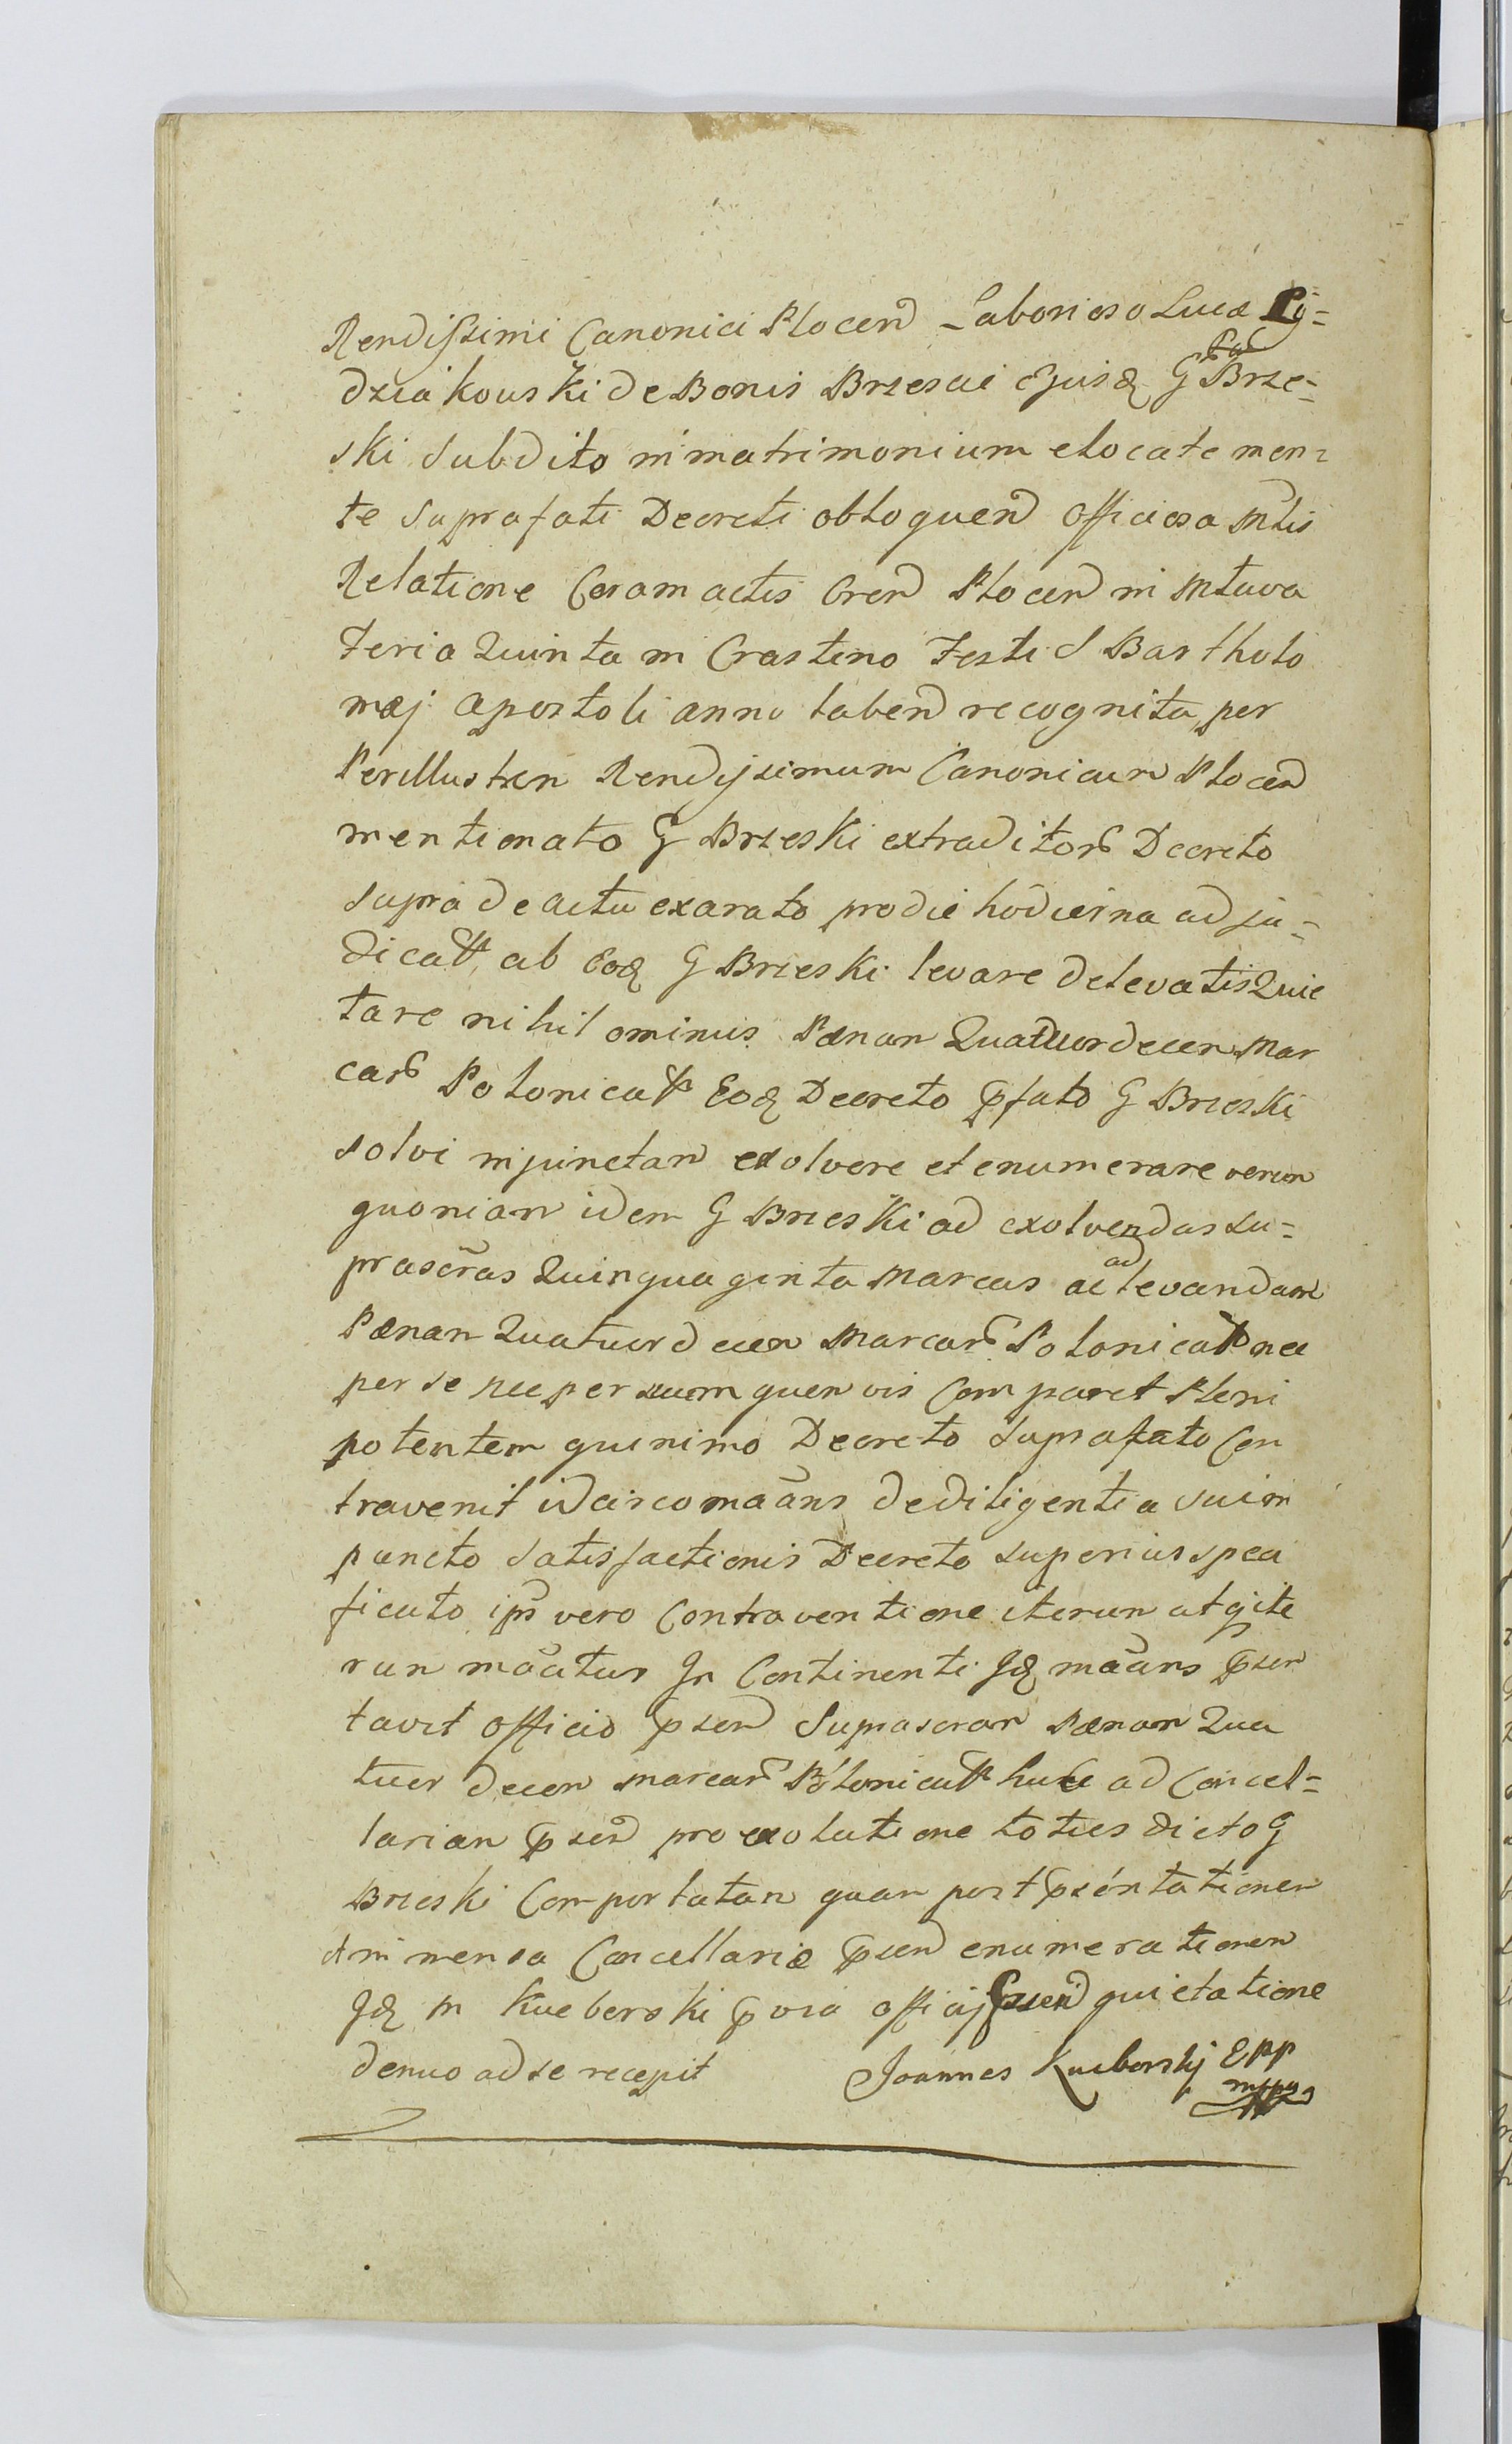 Rendissimi Canonici Plocen Laborioso Lucæ Py=
dziakouski de Bonis Brzescie Ejusd G Brze=
ski Subdito in matrimonium elocatæ men=
te Suprafati Decreti obloquen officiosa Mtlis
Relatione Coram actis Cren Plocen in Mlawa
Feria Quinta in Crastino Festi S Bartholo
mæj Apostoli anno laben recognita, per
Perillustrem Rendissimum Canonicum Plocen
mentionato G Brzeski extraditor Decreto
supra de actu exarato pro die hodierna adju=
dicatt, ab Eod G Brzeski levare de levatis Quie
tare nihilominus Pænam Quatuordecem Mar
car Polonicatt Eod Decreto pfato G Brzeski
solvi injunctam exolvere et enumerare verum
quoniam idem G Brzeski ad exolvendas su=
prascras Quinquaginta Marcas ac ad levandam
Pænam Quatuordecem Marcar Polonicatt nec
per se nec per suum quemvis Comparet Pleni
potentem quinimo Decreto Suprafato Con
travenit idcirco mãns de diligentia sui in
puncto Satisfactionis Decreto superius speci
ficato ips vero Contraventione iterum atq ite
rum mãtus In Continenti Id mãns psen
tavit officio psen Suprascram Pænam Qua
tuor decem marcar Polonicatt huc ad Cancel=
lariam psen pro exolutione toties dicto G
Brzeski Comportatam quam post psentationem
et in mensa Cancellariæ psen enumerationem
Id M Kueberski prævia officij psen quietatione
denuo ad se recepit Joannes Kuczborskj EPP
mppa